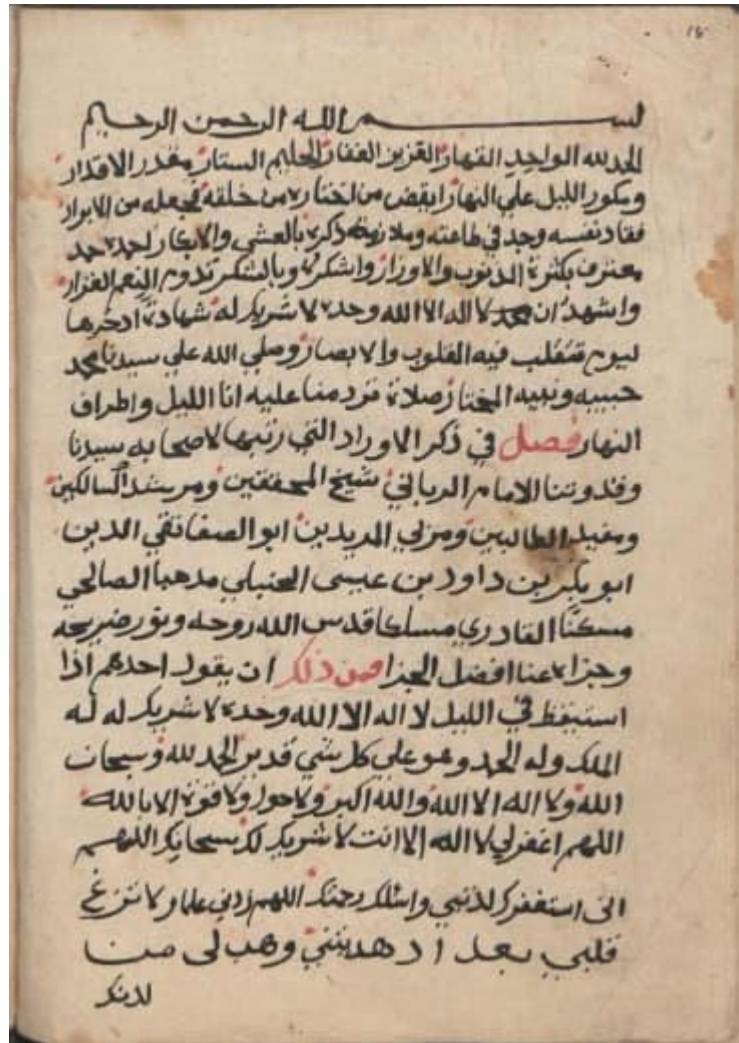 ١٥
بسم الله الرحمن الرحيم
الحمد لله الواحد القهار العزيز الغفار الحليم الستار مقدر الاقدار
ومكور الليل علي النهار ايقض من اختاره من خلقه فجعله من الابرار
فقاد نفسه وجد في طاعته وملازمة ذكره بالعشي والابكار احمده حمد
معترف بكثرة الذنوب والاوزار واشكره وبالشكر تدوم النعم الغزار
واشهد ان لا اله الا الله وحده لا شريك له شهادة ادخرها
ليوم تتقلب فيه القلوب والابصار وصلي الله علي سيدنا محمد
حبيبه ونبيه المختار صلاة ترد منا عليه انا الليل واطراف
النهار فصل في ذكر الاوراد التي رتبها لاصحابه سيدنا
وقدوتنا الامام الرباني شيخ المحققين ومرشد السالكين
ومفيد الطالبين ومربي المريدين ابو الصفا تقي الدين
ابو بكر بن داود بن عيسى الحنبلي مذهبا الصالحي
مسكنا القادري مسلكا قدس الله روحه ونور ضريحه
وجزاه عنا افضل الجزا فمن ذلك ان يقول احدهم اذا
استيقظ في الليل لا اله الا الله وحده لا شريك له له
الملك وله الحمد وهو علي كل شي قدير الحمد لله وسبحان
الله ولا اله الا الله والله اكبر ولا حول ولا قوة الا بالله
اللهم اغفرلي لا اله الا انت لا شريك لك سبحانك اللهم
اني استغفرك لذنبي واسئلك رحمتك اللهم زدني علما ولا تزغ
قلبي بعد اذ هديتني وهب لي من
لدنك